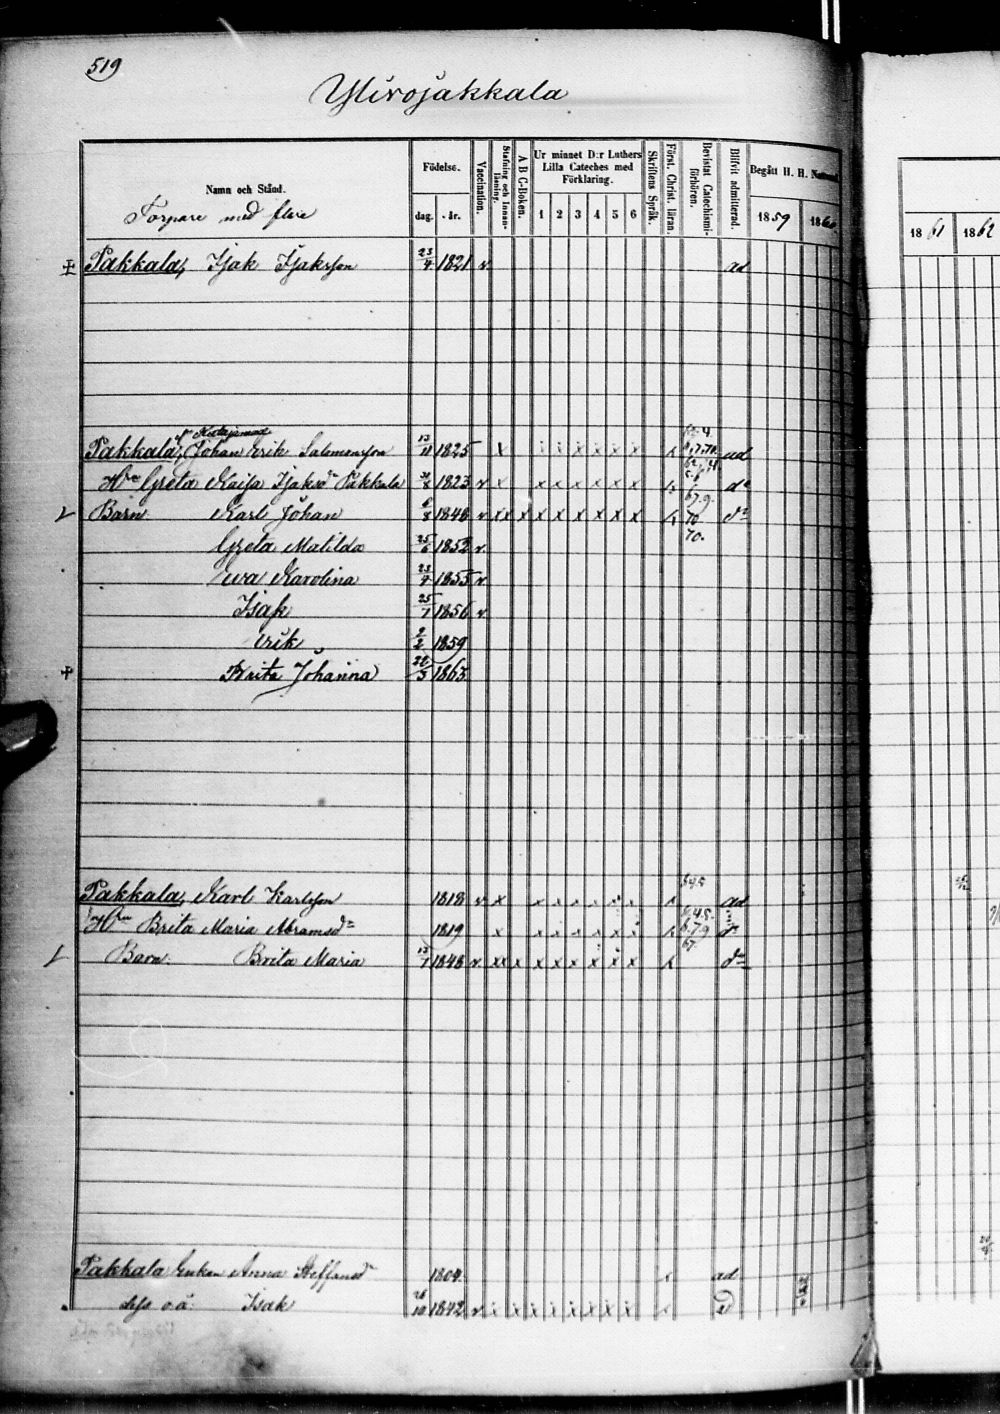 519
Ylivojakkala
Namn och Stånd.
Torpare med flere
Födelse.
dag. år.
Vaccination.
Stafning och Innanläsning.
A B C-Boken.
Ur minnet D:r Luthers Lilla Cateches med Förklaring.
1 2 3 4 5 6
Skriftens Språk.
Först. Christ. läran.
Bevistat Catechismiförhören.
Blifvit admitterad.
Begått H. H.
1859 1860
1861 1862
Pakkala, Isak Isaksson 23/4 1821 v ad
Pakkala, Johan Erik Salomonsson 13/11 1825 x x x x x x x ad
Hu Greta Kaisa Isaksdr Pakkala 1823 v x x x x x x x do
Barn Karl Johan 6/8 1848 v x x x x x x x x x do
Greta Matilda 25/6 1852 v
Eva Karolina 23/4 1855 v
Isak 25/1 1856 v
Erik 2/2 1859
Brita Johanna 22/5 1863
Pakkala, Karl Karlsson 1818 v x x x x x x x ad
Hun Brita Maria Abramsdr 1819 x x x x x x x do
Barn: Brita Maria 13/7 1848 v x x x x x x x x x do
Pakkala Enkan Anna Steffansdr 1804 ad
dess o.ä. Isak 26/10 1842 v x x x x x x x x x